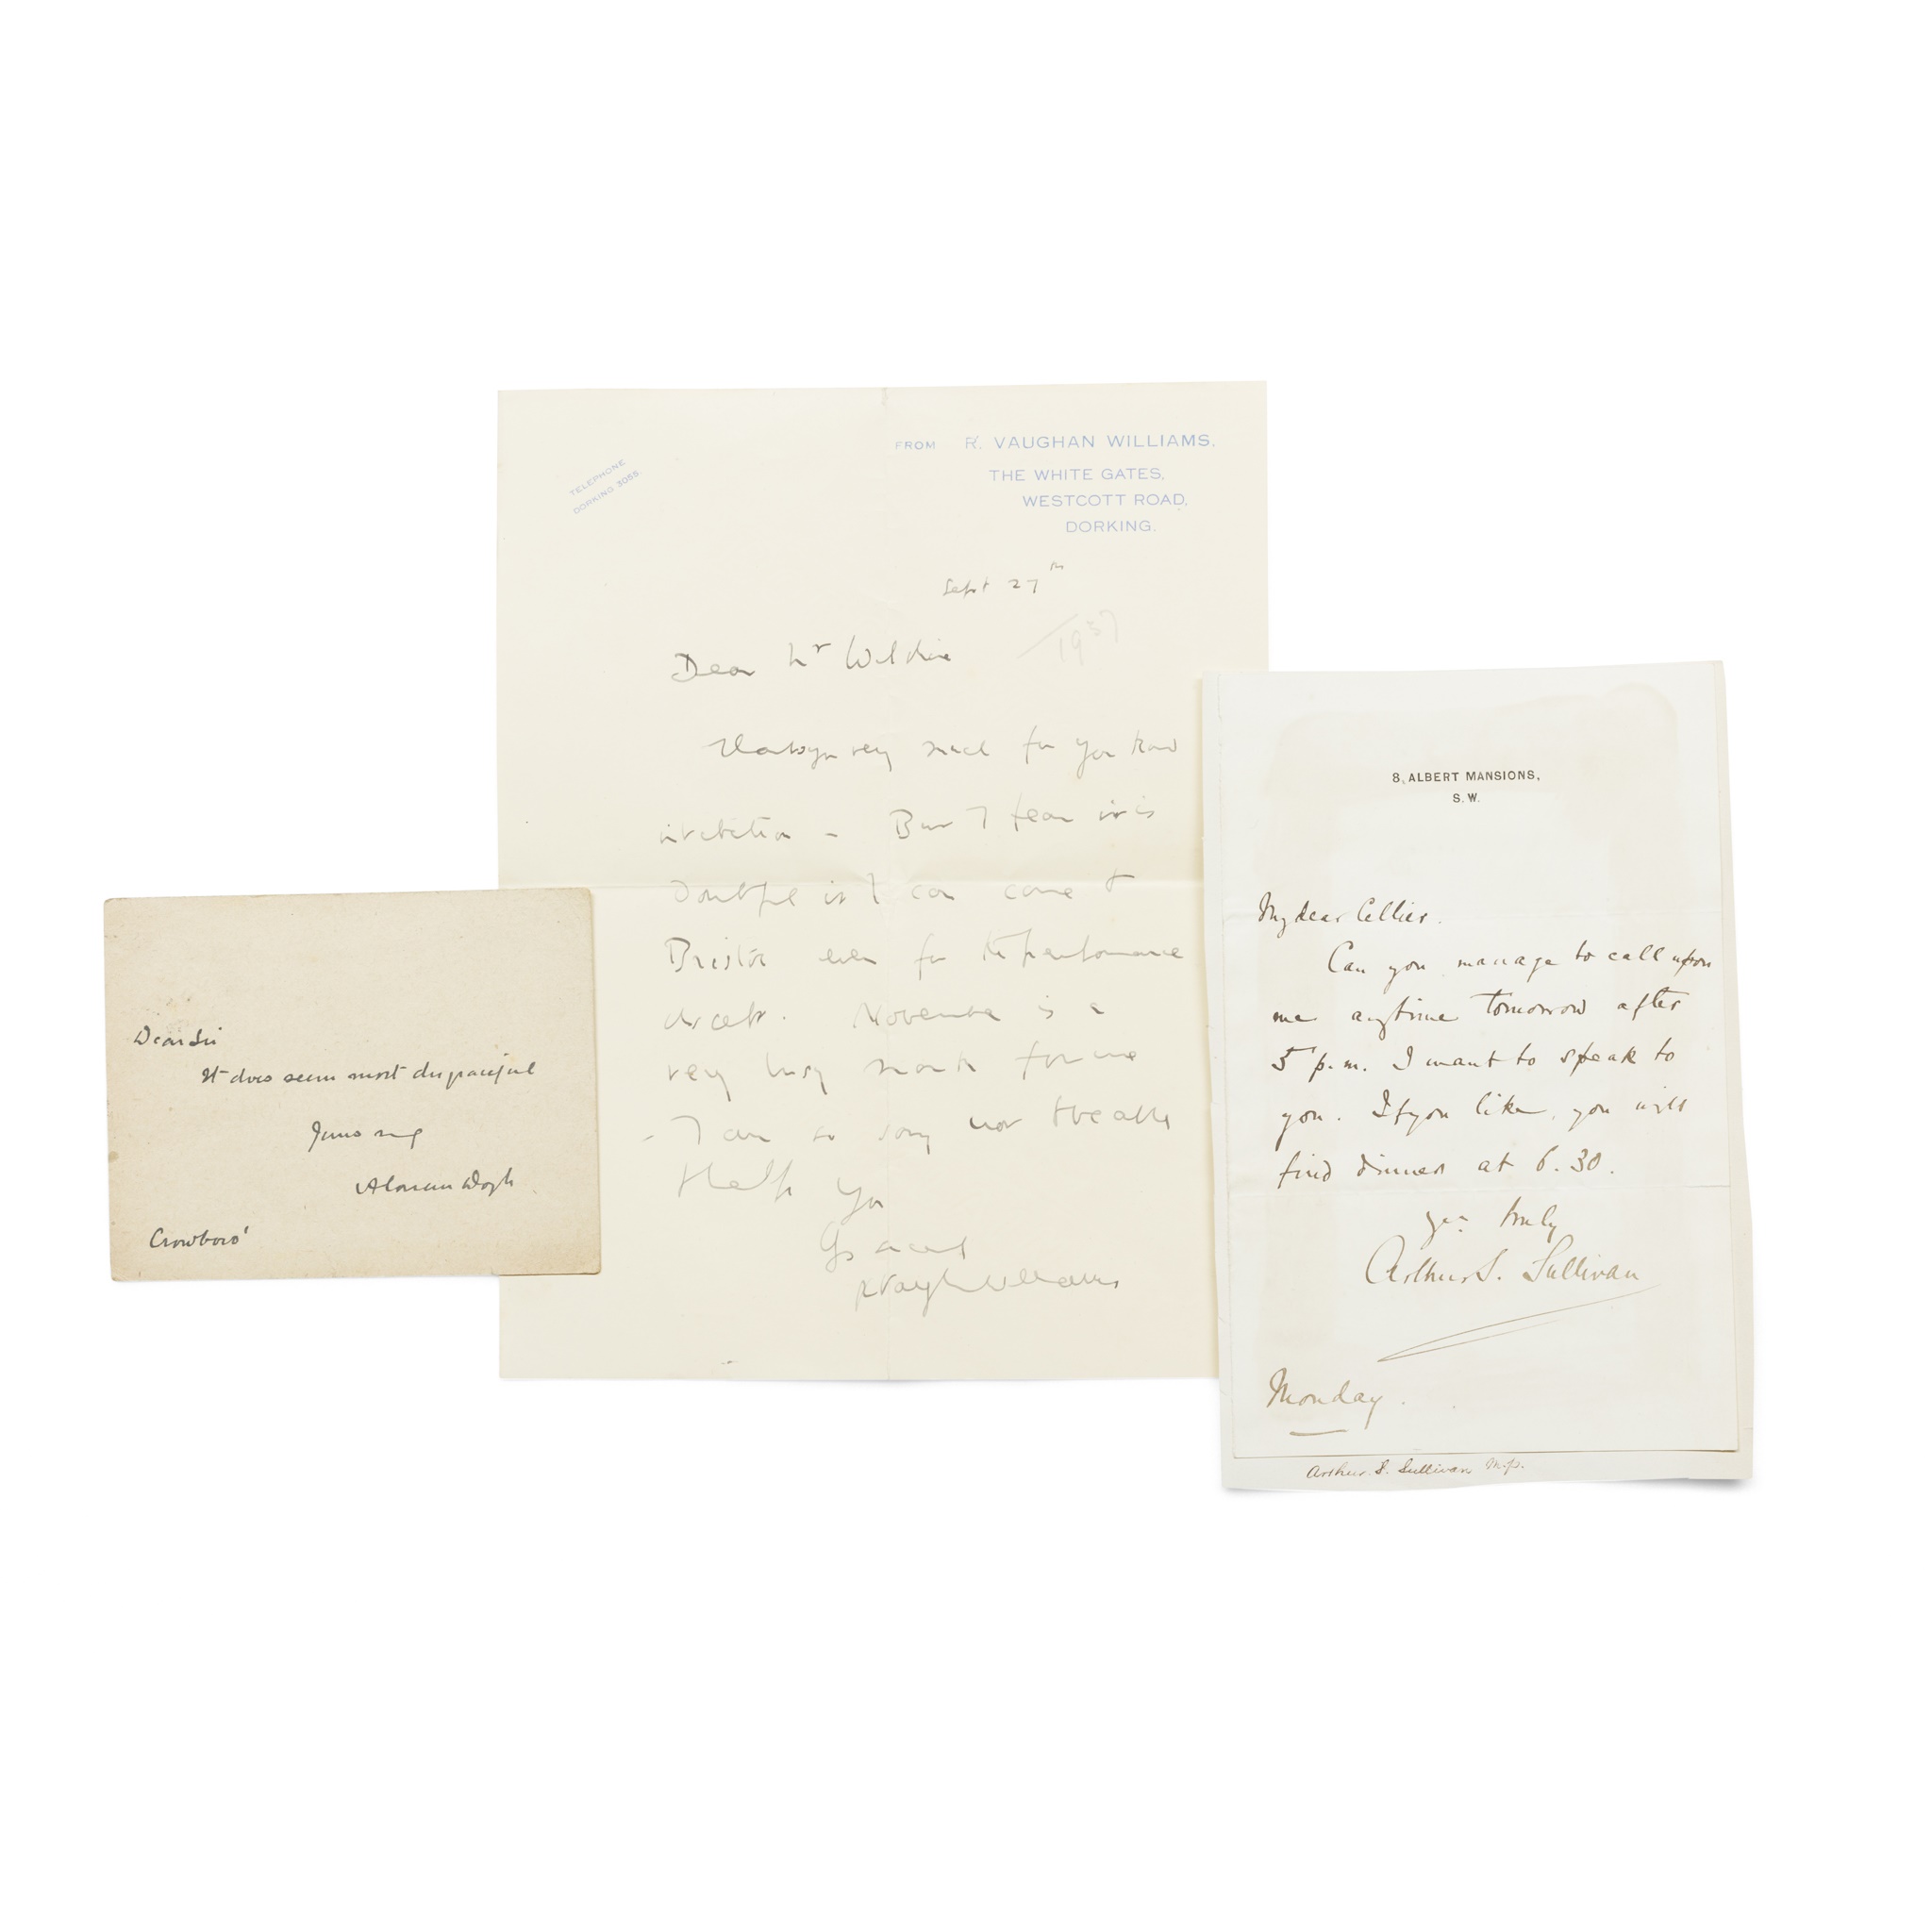 Dear Sir
It does seem most disgraceful
Yours
A Conan Doyle
Crowboro'
TELEPHONE
DORKING 3055.
FROM R. VAUGHAN WILLIAMS,
THE WHITE GATES,
WESTCOTT ROAD,
DORKING.
Sept 27th
1937
Dear Mr
Thank you very much for your kind
invitation - But I fear it is
doubtful if I can come to
Bristol even for the performance
November is a
very busy month for me
- I am so sorry not to be able
to help you
Yrs
R Vaughan Williams
8, ALBERT MANSIONS,
S.W.
My dear Cellier.
Can you manage to call upon
me anytime tomorrow after
5 p.m. I want to speak to
you. If you like, you will
find dinner at 6.30.
yrs truly
Arthur S. Sullivan
Monday.
Arthur. S. Sullivan